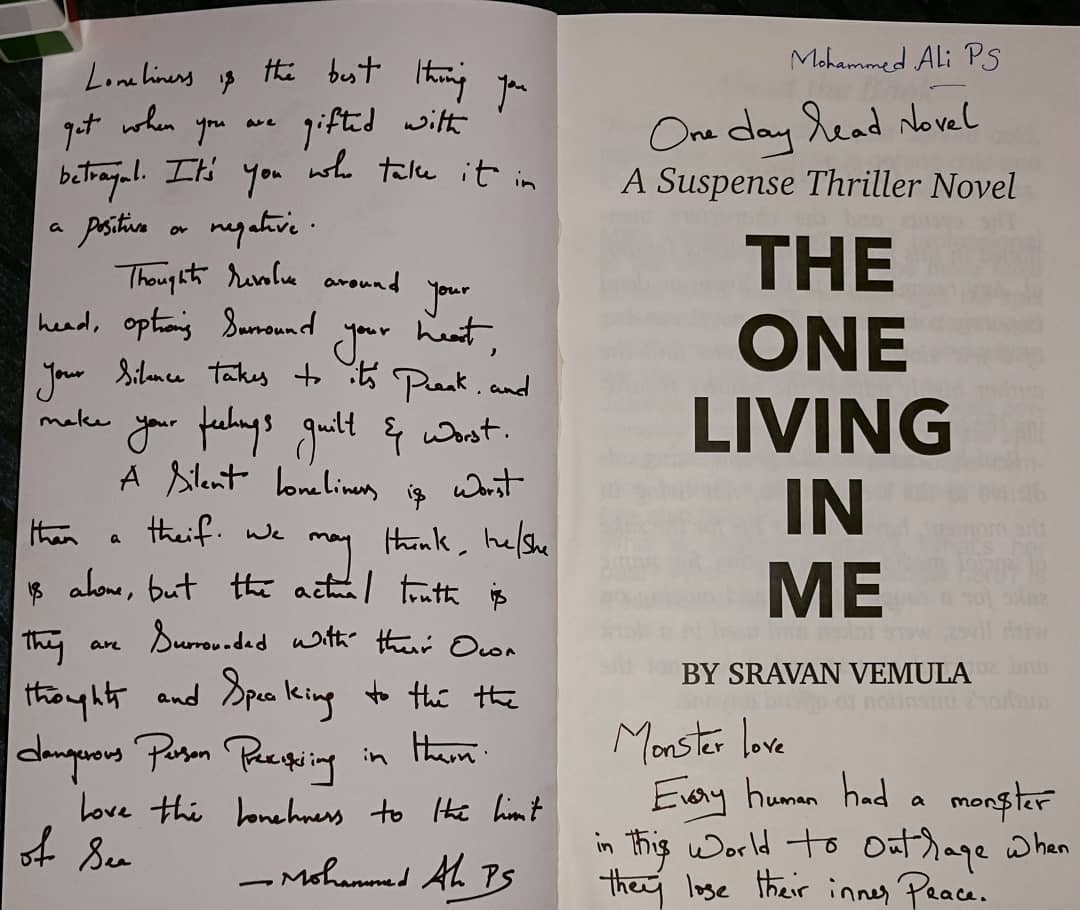 Loneliness is the best thing you
get when you are gifted with
betrayal. It's you who take it in
a positive or negative.
Thoughts revolve around your
head, options surround your heart,
your silence takes to it's Peak. and
make your feelings guilt & worst.
A silent loneliness is worst
than a theif. we may think, he/she
is alone, but the actual truth is
they are surrounded with their own
thoughts and Speaking to the the
dangerous Person in them.
Love the loneliness to the limit
of Sea
- Mohammed Ali PS
Mohammed Ali PS
One day Read Novel
A Suspense Thriller Novel
THE
ONE
LIVING
IN
ME
BY SRAVAN VEMULA
Monster love
Every human had a monster
in this world to outrage when
they lose their inner Peace.